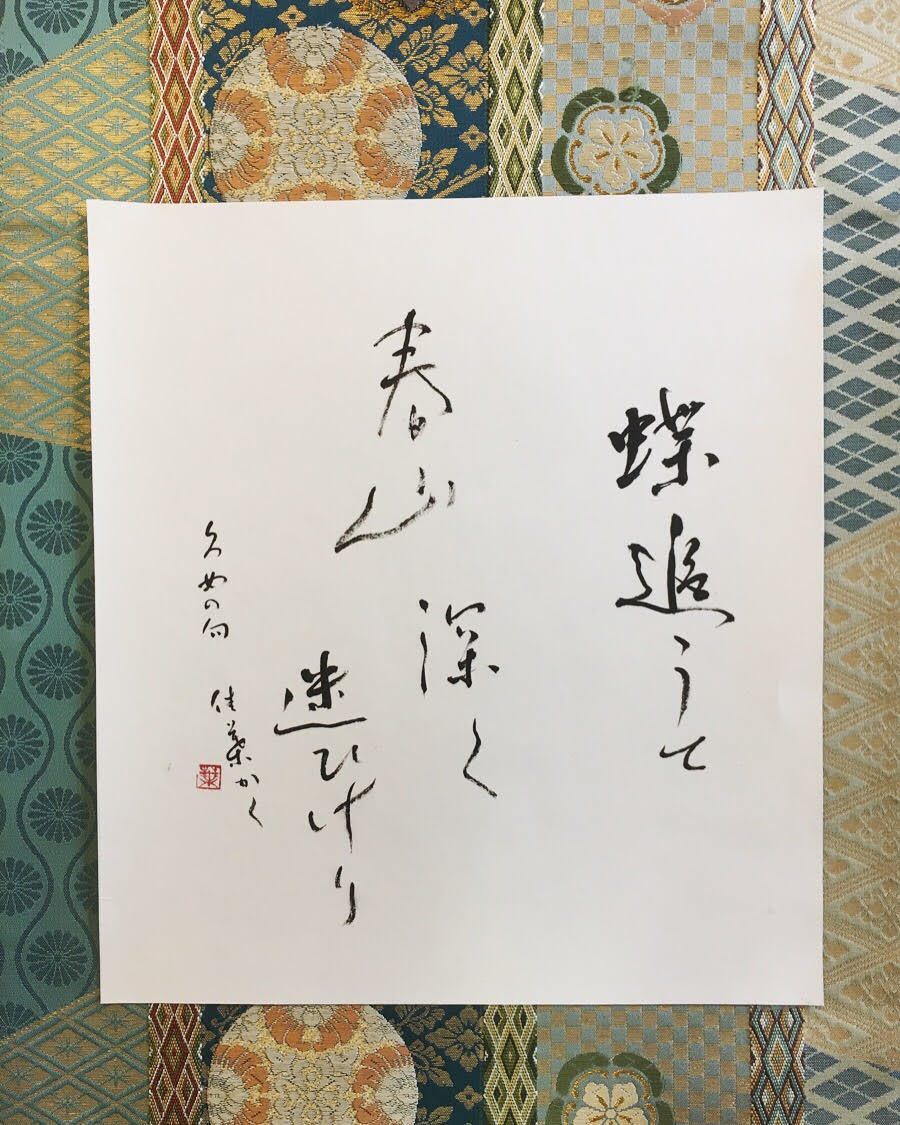 蝶追うて
春山
深く
迷ひけり
久女の句
佳葉かく
葉